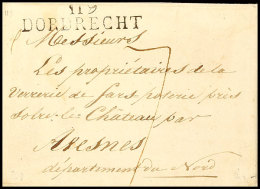 119
DORDRECHT
Messieurs
Les propriétaires de la
Verrerie de fars poterie près
Solre-le Château par
Avesnes
département du Nord